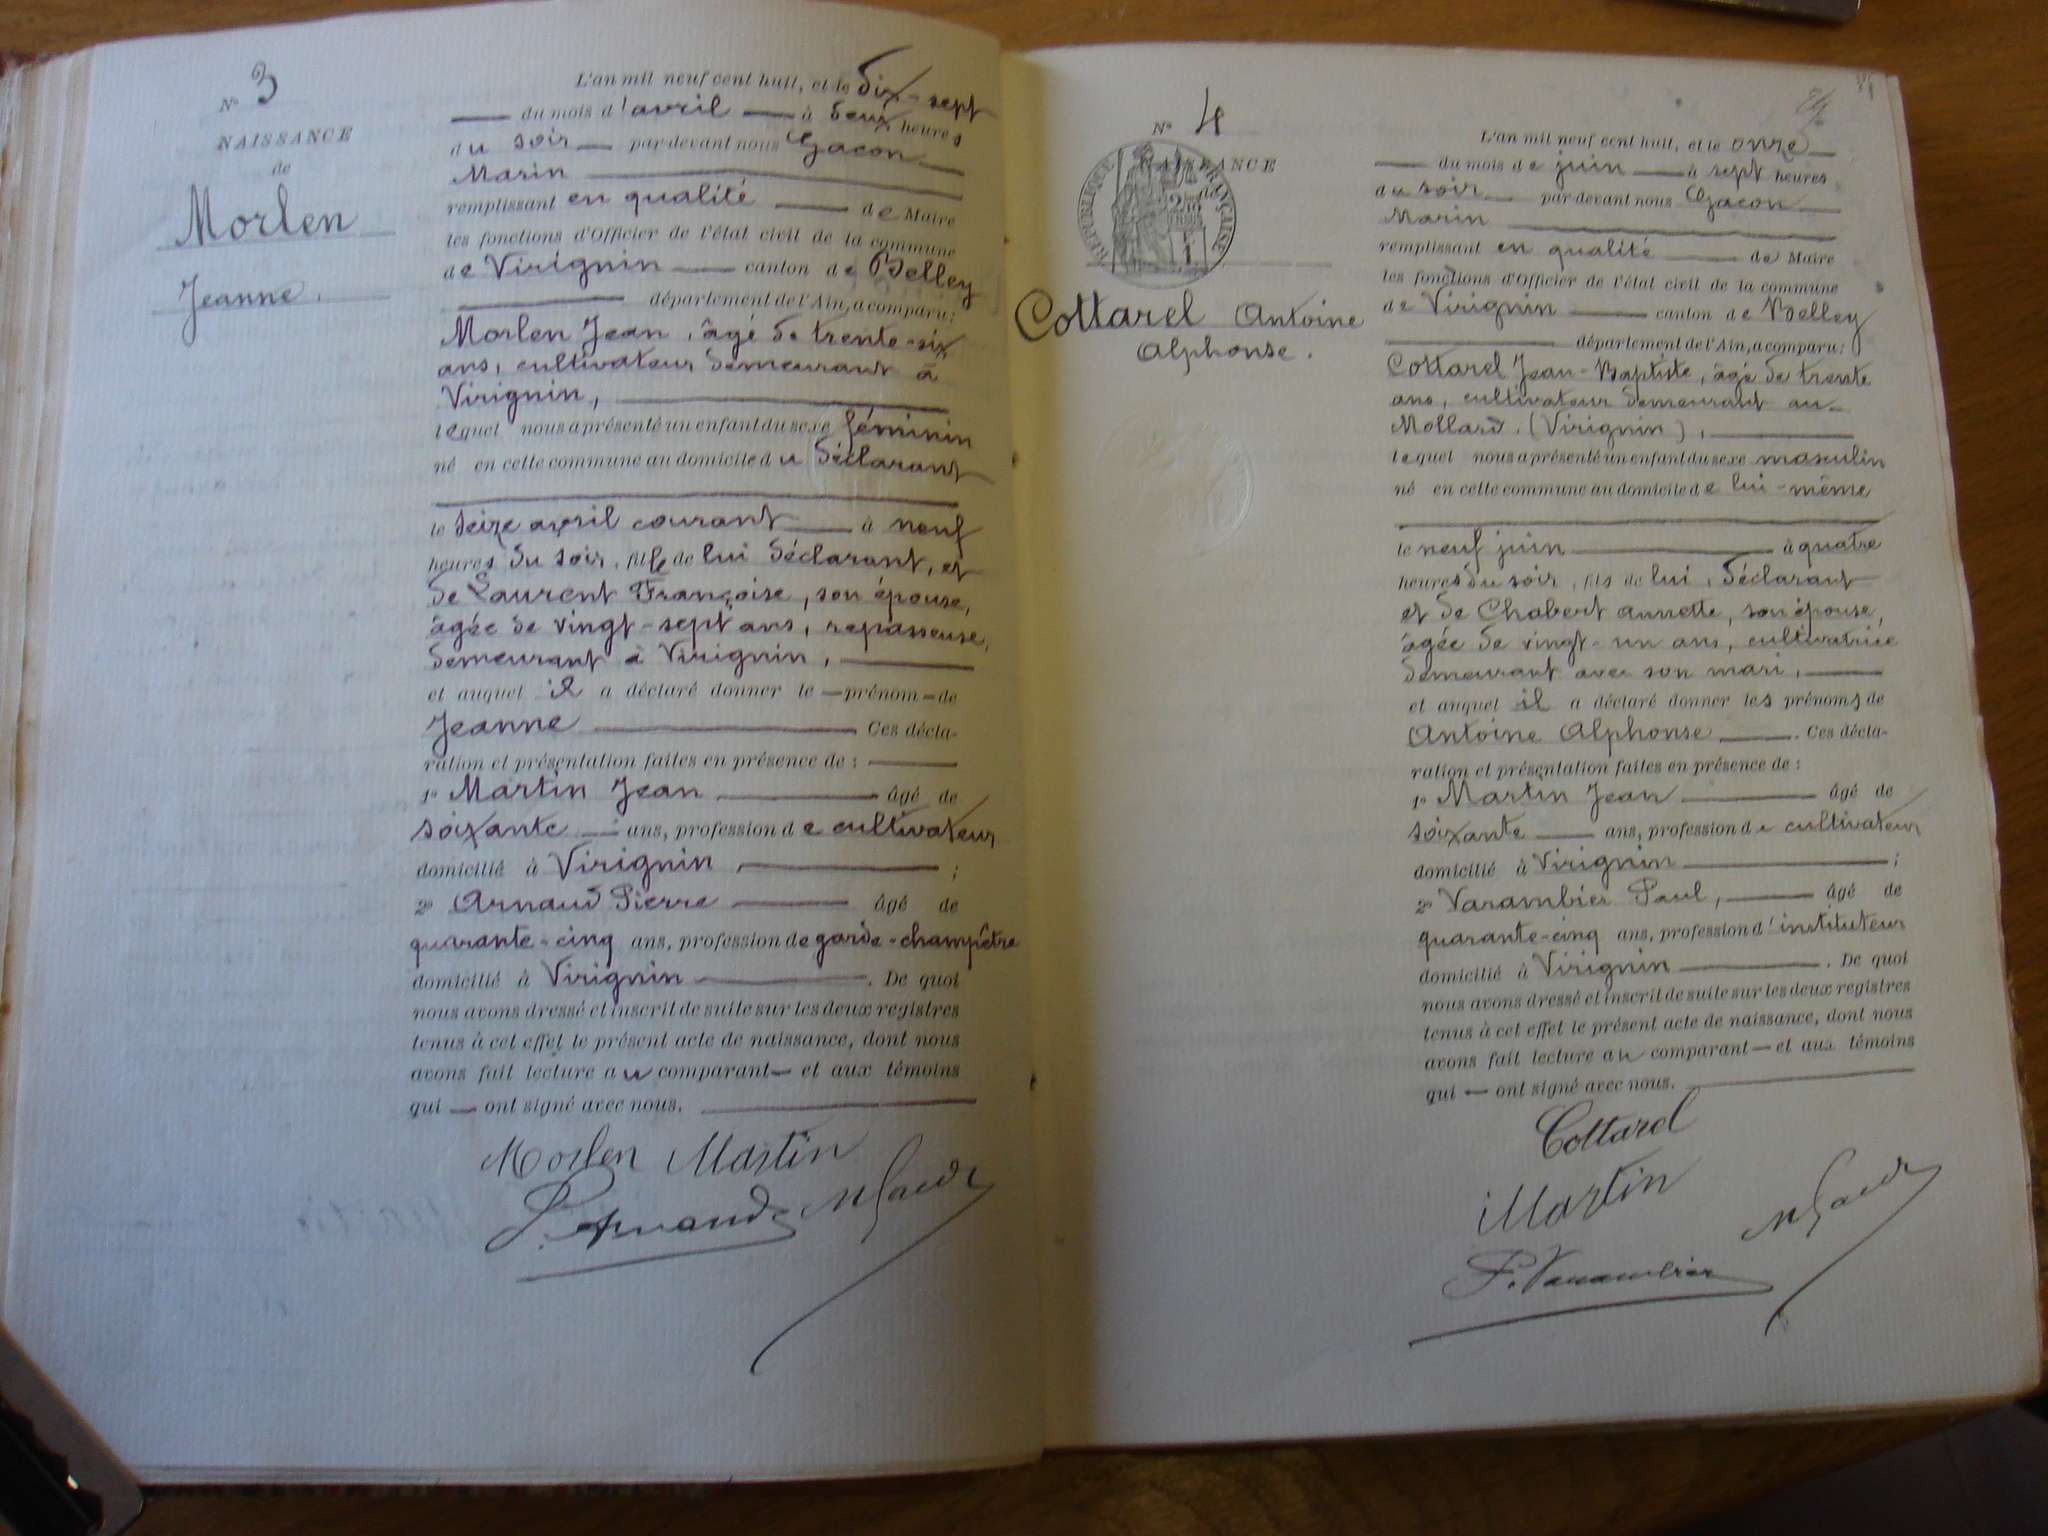 N° 3
NAISSANCE
de
Morlen
Jeanne.
L'an mil neuf cent huit, et le dix-sept
du mois d'avril à deux heures
du soir par devant nous Gacon
Marin
remplissant en qualité de Maire
les fonctions d'Officier de l'état civil de la commune
de Virignin canton de Belley
département de l'Ain, a comparu:
Morlen Jean, âgé de trente-six
ans, cultivateur demeurant à
Virignin,
lequel nous a présenté un enfant du sexe féminin
né en cette commune au domicile du déclarant
le seize avril courant à neuf
heures du soir, fille de lui déclarant, et
de Laurent Françoise, son épouse,
âgée de vingt-sept ans, repasseuse,
demeurant à Virignin,
et auquel il a déclaré donner le prénom de
Jeanne Ces décla-
ration et présentation faites en présence de:
1° Martin Jean âgé de
soixante ans, profession de cultivateur
domicilié à Virignin ;
2° Arnaud Pierre âgé de
quarante-cinq ans, profession de garde-champêtre
domicilié à Virignin . De quoi
nous avons dressé et inscrit de suite sur les deux registres
tenus à cet effet le présent acte de naissance, dont nous
avons fait lecture au comparant et aux témoins
qui ont signé avec nous.
Morlen Martin
P. Arnaud M Gacon
N° 4
NAISSANCE
de
RÉPUBLIQUE FRANÇAISE
Cottarel Antoine
Alphonse.
L'an mil neuf cent huit, et le onze
du mois de juin à sept heures
du soir par devant nous Gacon
Marin
remplissant en qualité de Maire
les fonctions d'Officier de l'état civil de la commune
de Virignin canton de Belley
département de l'Ain, a comparu:
Cottarel Jean-Baptiste, âgé de trente
ans, cultivateur demeurant au
Mollard. (Virignin),
lequel nous a présenté un enfant du sexe masculin
né en cette commune au domicile de lui-même
le neuf juin à quatre
heures du soir, fils de lui, déclarant
et de Chabert Annette, son épouse,
âgée de vingt-un ans, cultivatrice
demeurant avec son mari,
et auquel il a déclaré donner les prénoms de
Antoine Alphonse . Ces décla-
ration et présentation faites en présence de:
1° Martin Jean âgé de
soixante ans, profession de cultivateur
domicilié à Virignin ;
2° Varambier Paul, âgé de
quarante-cinq ans, profession d'instituteur
domicilié à Virignin . De quoi
nous avons dressé et inscrit de suite sur les deux registres
tenus à cet effet le présent acte de naissance, dont nous
avons fait lecture au comparant et aux témoins
qui ont signé avec nous.
Cottarel
Martin M Gacon
P. Varambier